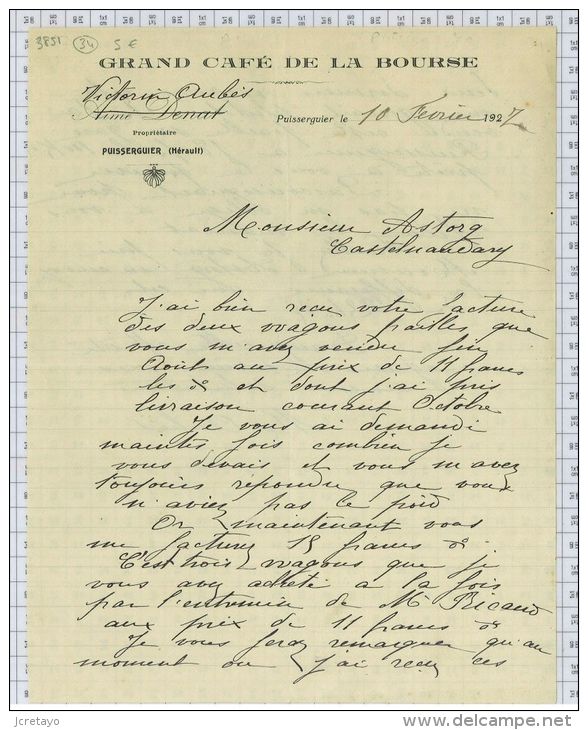 3851 34 5 €
GRAND CAFÉ DE LA BOURSE
Victorin Aubès
Aimé Denat
Propriétaire
PUISSERGUIER (Hérault)
Puisserguier le 10 Fevrier 1927
Monsieur Astorg
Castelnaudary
J'ai bien recu votre facture
des deux wagons pailles que
vous m'avez vendu fin
Août au prix de 11 francs
les % et dont j'ai pris
livraison courant Octobre
Je vous ai demandé
maintes fois combien je
vous devais et vous m'avez
toujours repondu que vous
n'aviez pas le poid
Or maintenant vous
me facturez 15 francs %
C'est trois wagons que je
vous avez acheté a la fois
par l'entremise de Mr Ricaud
aux prix de 11 francs %
Je vous ferez remarquer qu'au
moment ou j'ai recu ces
jcretayo
delcampe.net